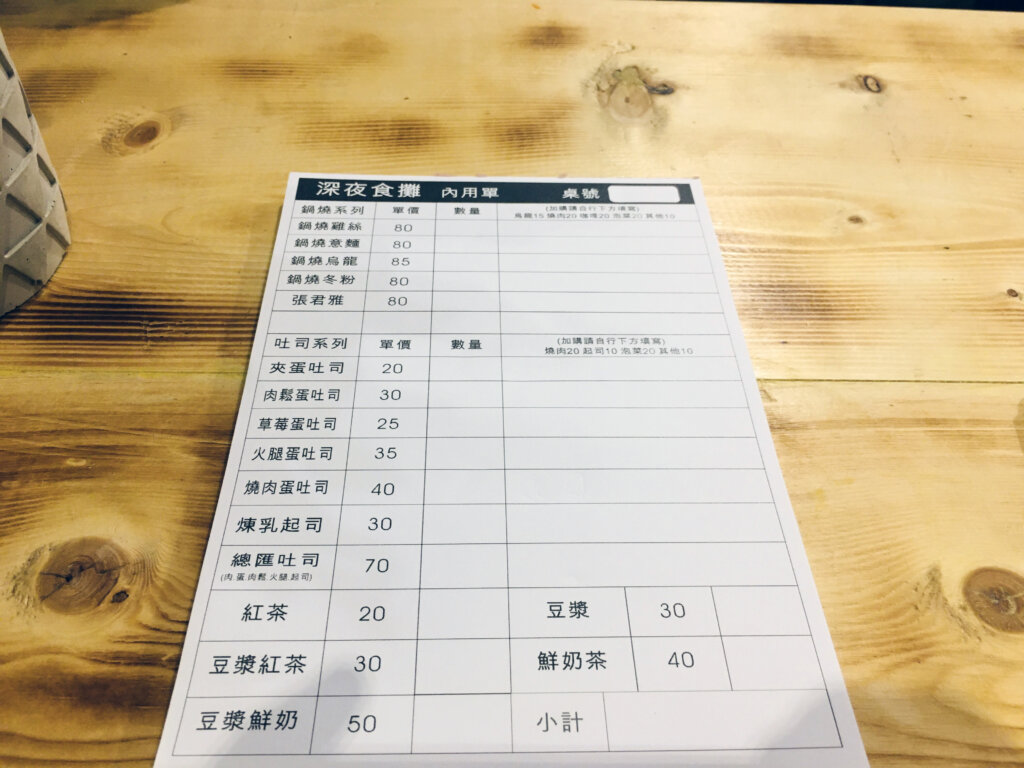 深夜食攤 內用單 桌號
鍋燒系列 單價 數量 (加購請自行下方填寫)
烏龍15 燒肉20 咖哩20 泡菜20 其他10
鍋燒雞絲 80
鍋燒意麵 80
鍋燒烏龍 85
鍋燒冬粉 80
張君雅 80
吐司系列 單價 數量 (加購請自行下方填寫)
燒肉20 起司10 泡菜20 其他10
夾蛋吐司 20
肉鬆蛋吐司 30
草莓蛋吐司 25
火腿蛋吐司 35
燒肉蛋吐司 40
煉乳起司 30
總匯吐司 70
(肉.蛋.肉鬆.火腿.起司)
紅茶 20 豆漿 30
豆漿紅茶 30 鮮奶茶 40
豆漿鮮奶 50 小計